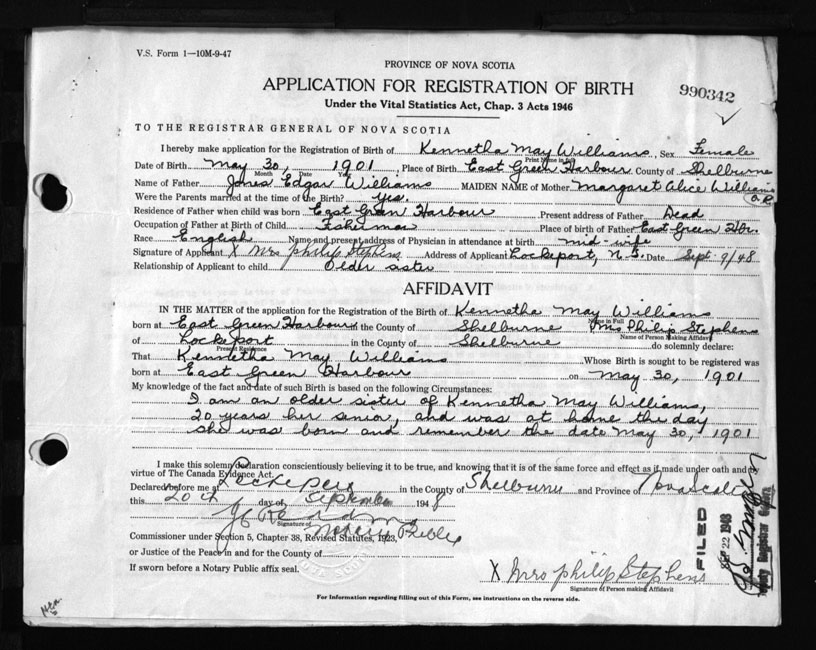 V.S. Form 1—10M-9-47
PROVINCE OF NOVA SCOTIA
APPLICATION FOR REGISTRATION OF BIRTH
990342
Under the Vital Statistics Act, Chap. 3 Acts 1946
TO THE REGISTRAR GENERAL OF NOVA SCOTIA
I hereby make application for the Registration of Birth of Kennetha May Williams, Sex Female
Print Name in full
Date of Birth May 30, 1901, Place of Birth East Green Harbour County of Shelburne
Month Date Year
Name of Father Edgar Williams MAIDEN NAME of Mother Margaret Alice Williams
Were the Parents married at the time of the Birth? yes.
Residence of Father when child was born East Green Harbour Present address of Father Dead
Occupation of Father at Birth of Child Fisherman Place of birth of Father East Green Hbr.
Race English Name and present address of Physician in attendance at birth mid-wife
Signature of Applicant X Mrs Philip Stephens Address of Applicant Lockeport, N.S. Date Sept. 9/48
Relationship of Applicant to child older sister
AFFIDAVIT
IN THE MATTER of the application for the Registration of the Birth of Kennetha May Williams
Name in Full
born at East Green Harbour in the County of Shelburne Mrs Philip Stephens
Name of Person Making Affidavit
of Lockeport in the County of Shelburne do solemnly declare:
Present Residence
That Kennetha May Williams Whose Birth is sought to be registered was
born at East Green Harbour on May 30, 1901
My knowledge of the fact and date of such Birth is based on the following Circumstances:
I am an older sister of Kennetha May Williams,
20 years her senior, and was at home the day
she was born and remember the date May 30, 1901
I make this solemn declaration conscientiously believing it to be true, and knowing that it is of the same force and effect as if made under oath and by
virtue of The Canada Evidence Act.
Declared before me at Lockeport in the County of Shelburne and Province of Nova Scotia
this 20th day of September 1948
Signature of
Notary Public
Commissioner under Section 5, Chapter 38, Revised Statutes, 1923,
or Justice of the Peace in and for the County of
If sworn before a Notary Public affix seal.
X Mrs Philip Stephens
Signature of Person making Affidavit
For Information regarding filling out of this Form, see instructions on the reverse side.
FILED
SEP 22 1948
Deputy Registrar General